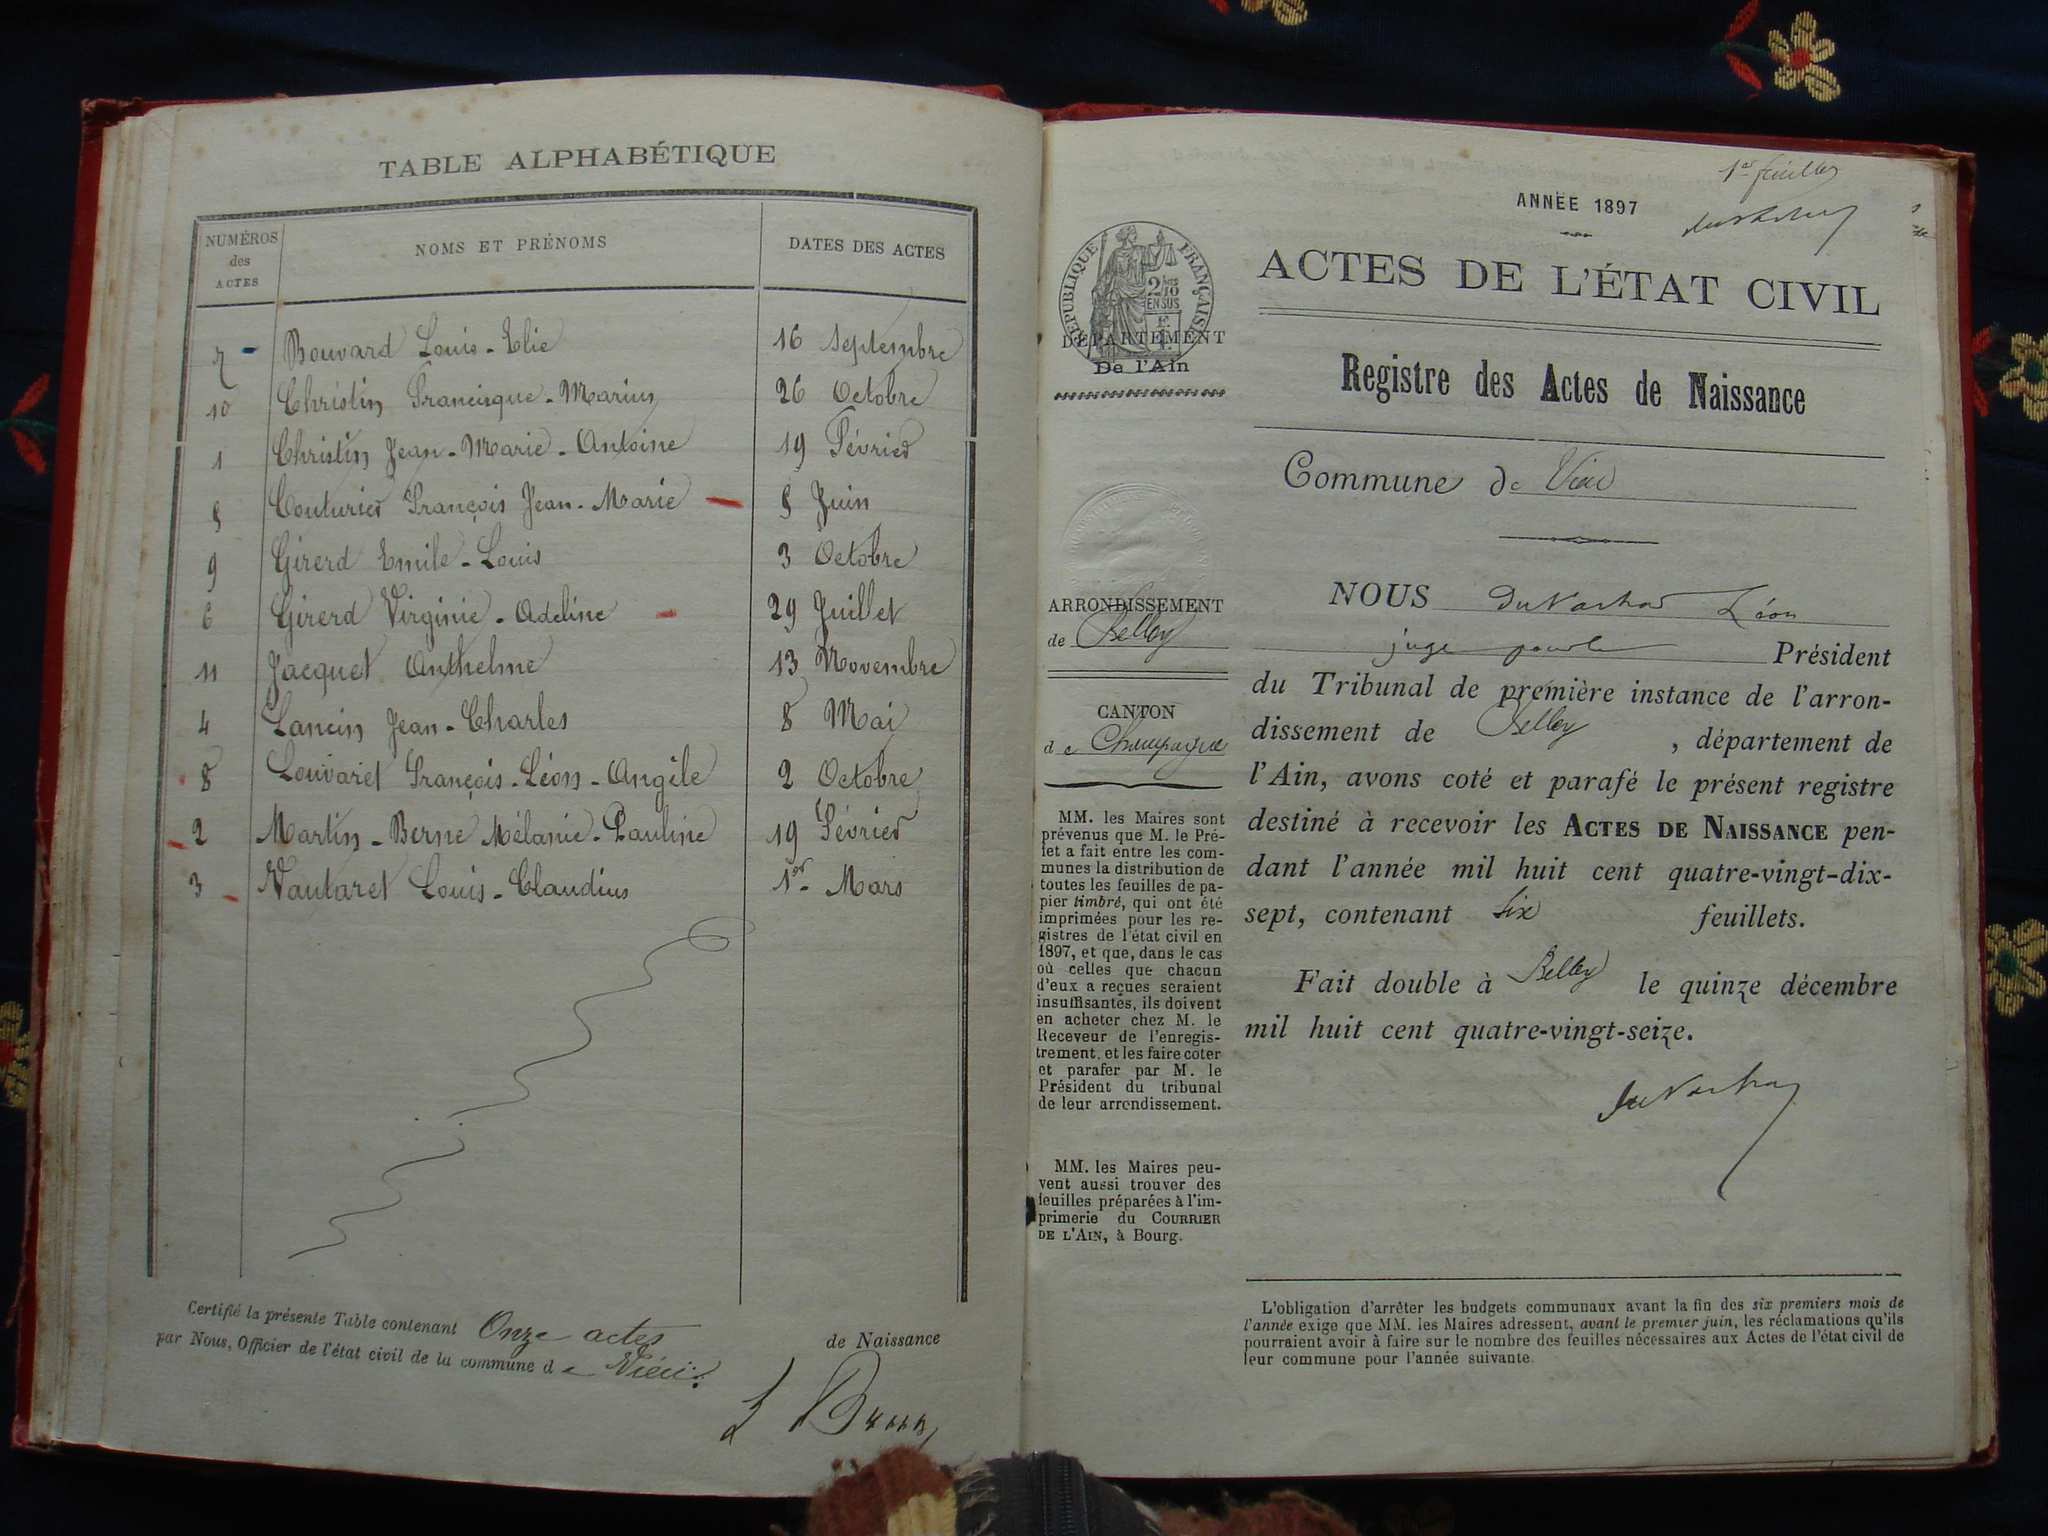 TABLE ALPHABÉTIQUE
NUMÉROS des ACTES NOMS ET PRÉNOMS DATES DES ACTES
7 Bouvard Louis-Elie 16 Septembre
10 Christin Francisque-Marius 26 Octobre
1 Christin Jean-Marie-Antoine 19 Février
5 Couturier François Jean-Marie 5 Juin
9 Girerd Emile-Louis 3 Octobre
6 Girerd Virginie-Adeline 29 Juillet
11 Jacquet Anthelme 13 Novembre
4 Lancin Jean-Charles 8 Mai
8 Louvaret François-Léon-Angèle 2 Octobre
2 Martin-Berne Mélanie-Pauline 19 Février
3 Vautaret Louis-Claudius 1er Mars
Certifié la présente Table contenant Onze actes de Naissance
par Nous, Officier de l'état civil de la commune de
1er feuillet
ANNÉE 1897
ACTES DE L'ÉTAT CIVIL
Registre des Actes de Naissance
Commune de
NOUS Léon
juge pour le Président
du Tribunal de première instance de l'arron-
dissement de Belley, département de
l'Ain, avons coté et parafé le présent registre
destiné à recevoir les ACTES DE NAISSANCE pen-
dant l'année mil huit cent quatre-vingt-dix-
sept, contenant six feuillets.
Fait double à Belley le quinze décembre
mil huit cent quatre-vingt-seize.
RÉPUBLIQUE FRANÇAISE
2/10 EN SUS
DÉPARTEMENT
De l'Ain
ARRONDISSEMENT
de Belley
CANTON
de Champagne
MM. les Maires sont
prévenus que M. le Pré-
fet a fait entre les com-
munes la distribution de
toutes les feuilles de pa-
pier timbré, qui ont été
imprimées pour les re-
gistres de l'état civil en
1897, et que, dans le cas
où celles que chacun
d'eux a reçues seraient
insuffisantes, ils doivent
en acheter chez M. le
Receveur de l'enregis-
trement, et les faire coter
et parafer par M. le
Président du tribunal
de leur arrondissement.
MM. les Maires peu-
vent aussi trouver des
feuilles préparées à l'im-
primerie du COURRIER
DE L'AIN, à Bourg.
L'obligation d'arrêter les budgets communaux avant la fin des six premiers mois de
l'année exige que MM. les Maires adressent, avant le premier juin, les réclamations qu'ils
pourraient avoir à faire sur le nombre des feuilles nécessaires aux Actes de l'état civil de
leur commune pour l'année suivante.